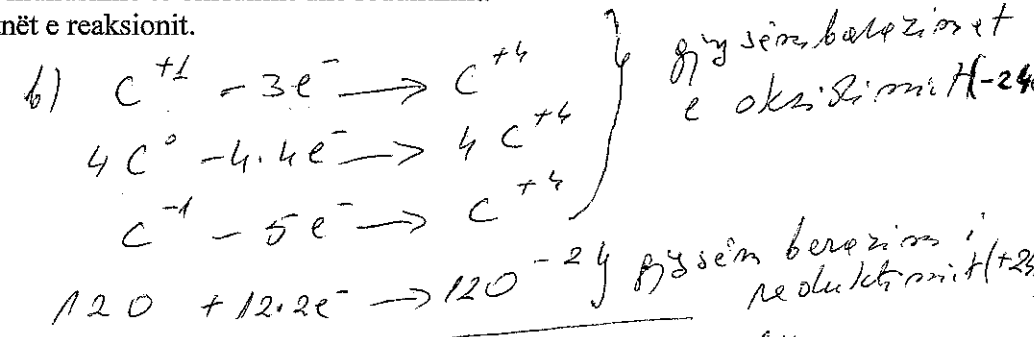 nët e reaksionit.
b) C⁺¹ - 3e⁻ → C⁺⁴
4C⁰ - 4·4e⁻ → 4C⁺⁴
C⁻¹ - 5e⁻ → C⁺⁴
} gjysëmbarazimet
e oksidimit (-24e
12O + 12·2e⁻ → 12O⁻² } gjysëm barazim i
reduktimit (+24